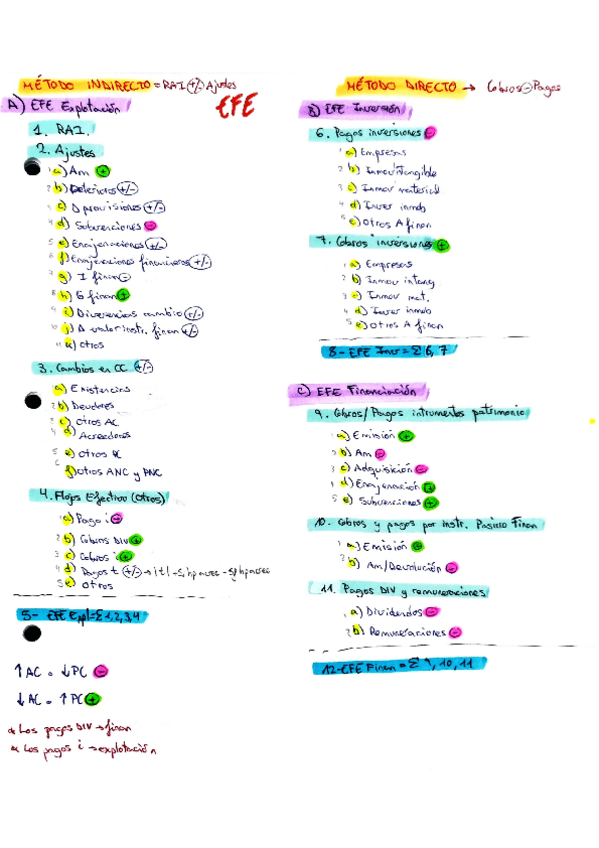 MÉTODO INDIRECTO = RAI (+/-) Ajustes
EFE
A) EFE Explotación
1. RAI.
2. Ajustes
1 a) Am +
2 b) Deterioros (+/-)
3 c) Δ provisiones (+/-)
4 d) Subvenciones -
5 e) Enajenaciones (+/-)
6 f) Enajenaciones financieros (+/-)
7 g) I finan -
8 h) G finan +
9 i) Diferencias cambio (+/-)
10 j) Δ valor instr. finan (+/-)
11 k) Otros
3. Cambios en CC (+/-)
1 a) Existencias
2 b) Deudores
3 c) Otros AC
4 d) Acreedores
5 e) Otros PC
6 f) Otros ANC y PNC
4. Flujos Efectivo (Otros)
1 a) Pago i -
2 b) Cobros DIV +
3 c) Cobros i +
4 d) Pagos t (+/-) →
5 e) Otros
5- EFE Expl = Σ 1,2,3,4
↑ AC = ↓ PC -
↓ AC = ↑ PC +
* Los pagos DIV → finan
* Los pagos i → explotación
MÉTODO DIRECTO → Cobros - Pagos
B) EFE Inversión
6. Pagos inversiones -
1 a) Empresas
2 b) Inmov intangible
3 c) Inmov material
4 d) Inver inmob
5 e) Otros A finan
7. Cobros inversiones +
1 a) Empresas
2 b) Inmov intang
3 c) Inmov mat.
4 d) Inver inmob
5 e) Otros A finan
8- EFE Inver = Σ 6, 7
C) EFE Financiación
9. Cobros/Pagos intrumentos patrimonio
1 a) Emisión +
2 b) Am -
3 c) Adquisición -
4 d) Enajenación +
5 e) Subvenciones +
10. Cobros y pagos por instr. Pasivo Finan
1 a) Emisión +
2 b) Am/Devolución -
11. Pagos DIV y remuneraciones
1 a) Dividendos -
2 b) Remuneraciones -
12- EFE Finan = Σ 9, 10, 11